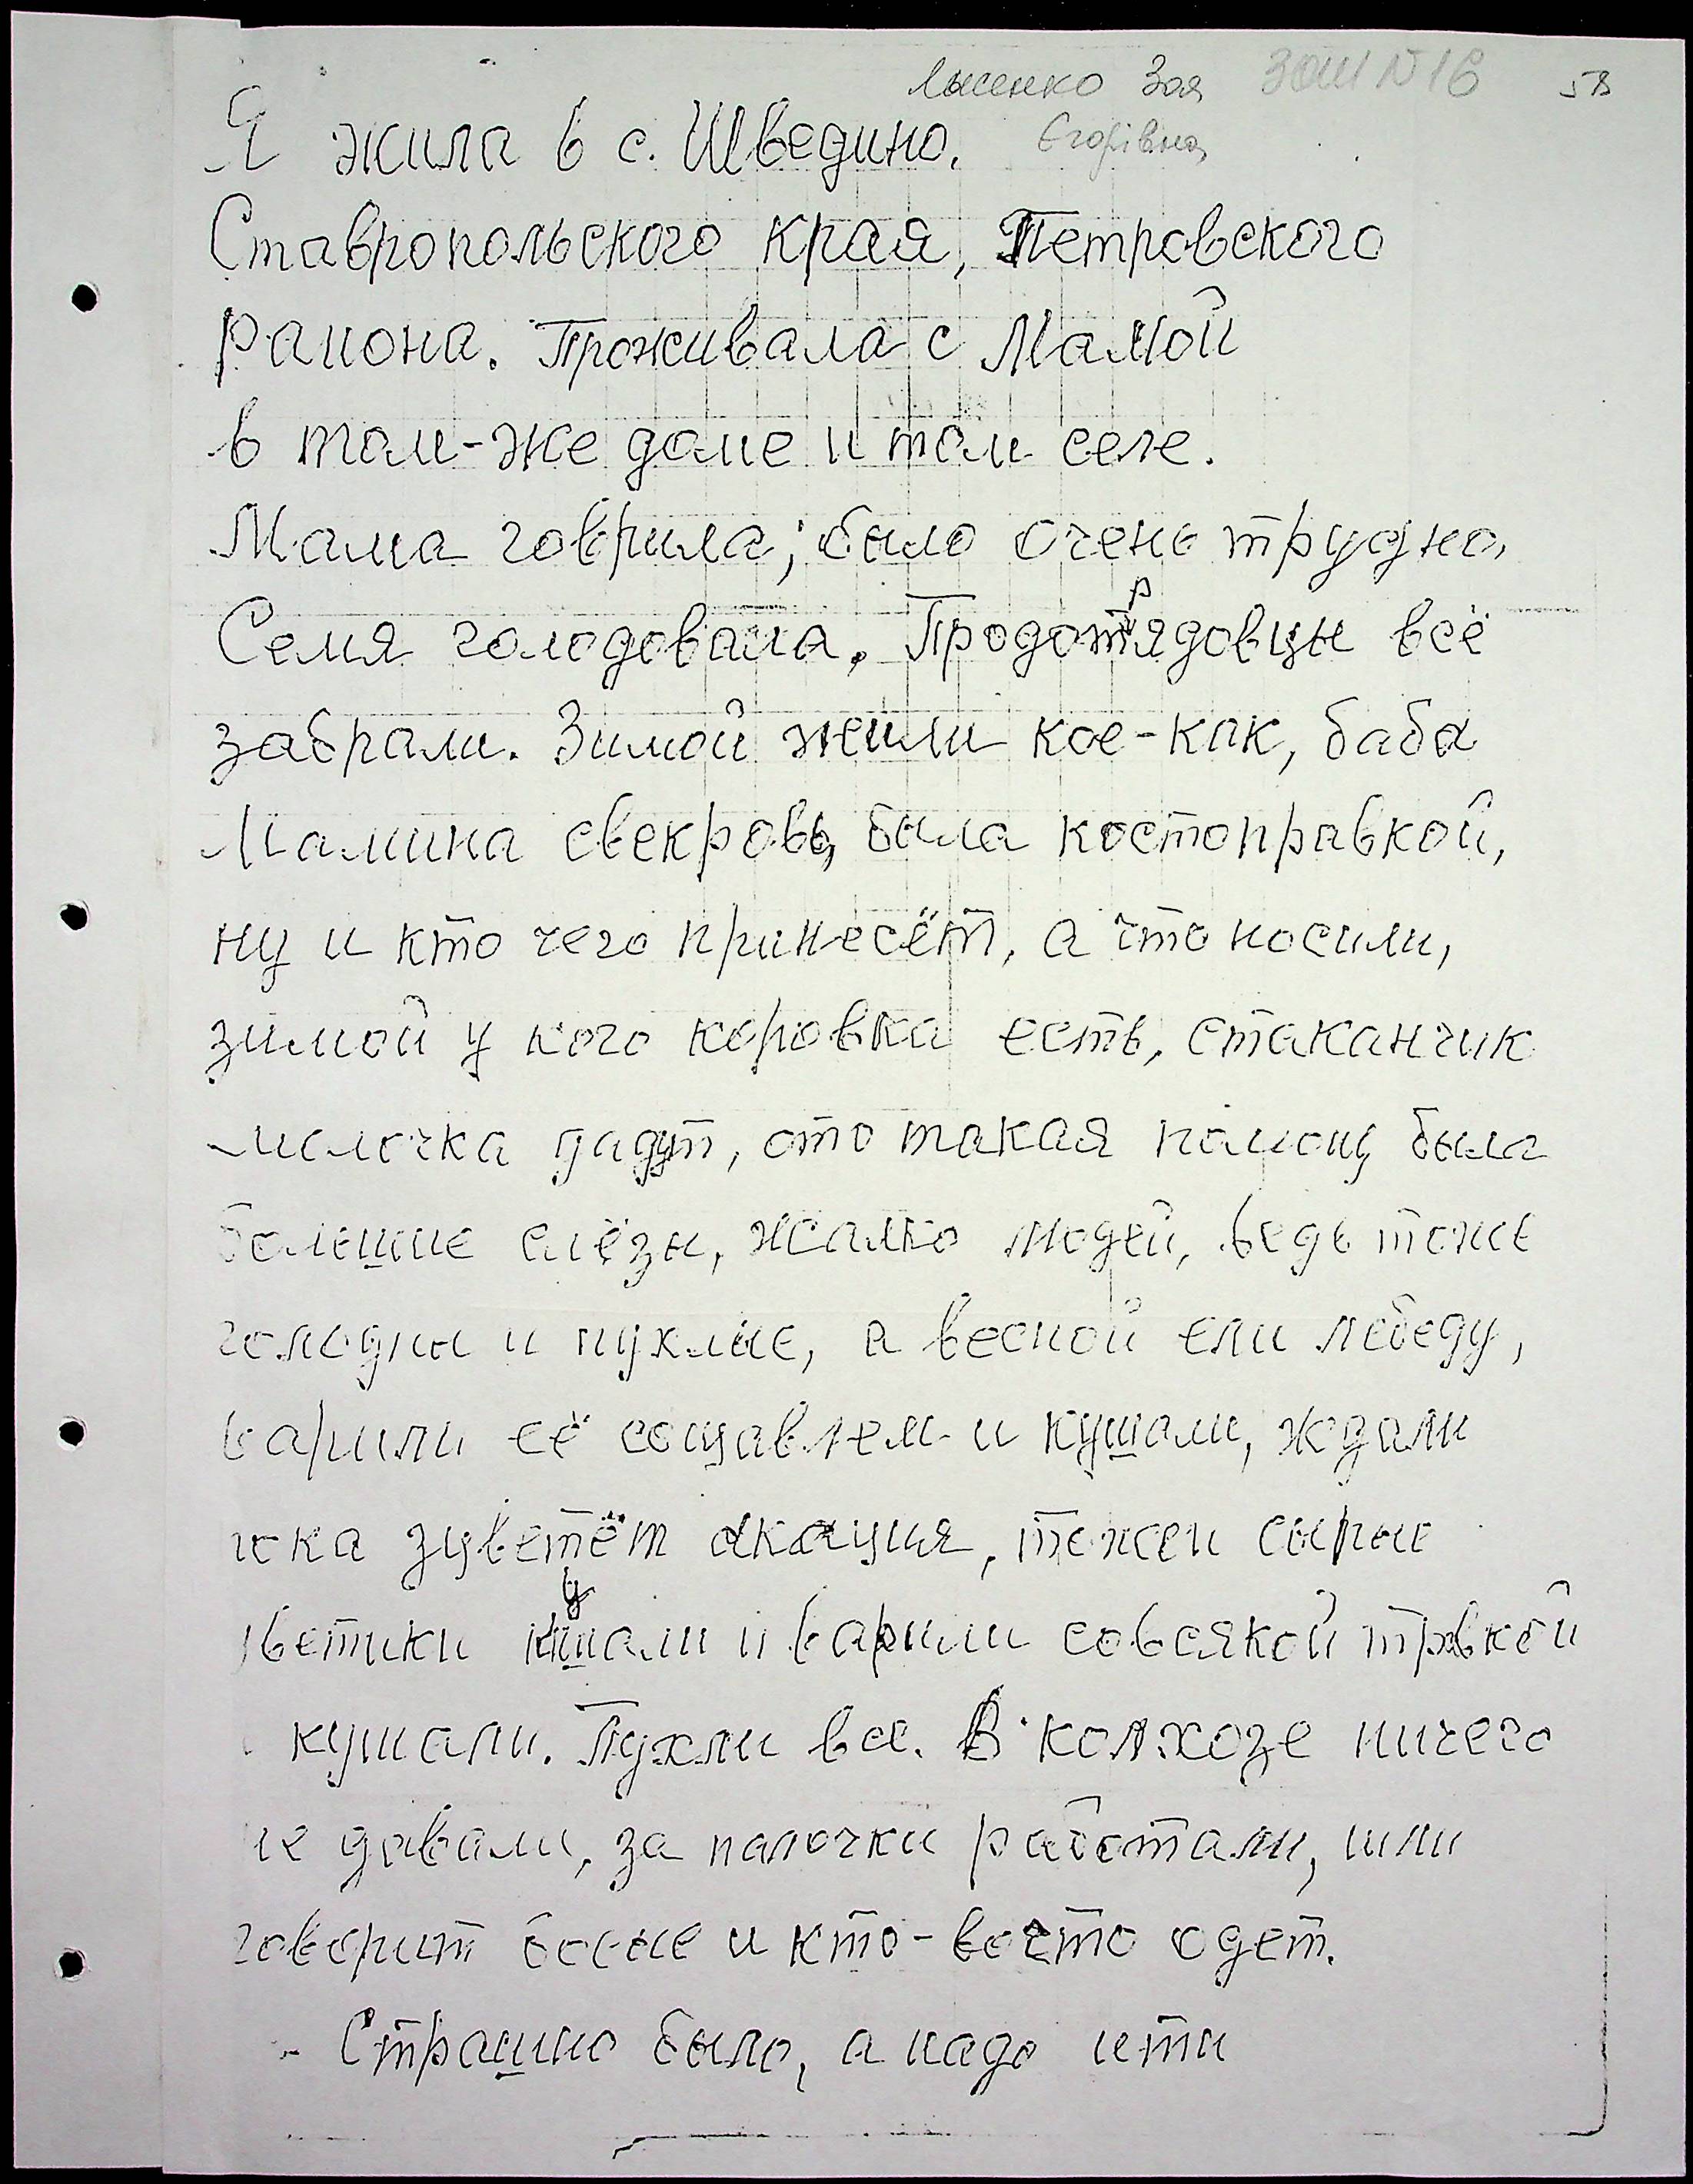 Лысенко Зоя ЗОШ №16 5В
Єгорівна
Я жила в с. Шведино.
Ставропольского края, Петровского
Раиона. Проживала с Мамой
в том-же доме и том селе.
Мама говрила; было очень трудно.
Семя голодовала. Продотрядовцы всё
забрали. Зимой жили кое-как, баба
Мамина свекровь, была костоправкой,
ну и кто чего принесёт, а что носили,
зимой у кого коровка есть, стаканчик
молочка дадут, ото такая помощ была
болешие слёзы, жалко людей, ведь тоже
голодны и пухлые, а весной ели лебеду,
варили её сощавлем и кушали, ждали
пока зцветёт акация, тожеи сырые
цветики кушали и варили совсякой травкой
кушали. Пухли все. В колхозе ничего
не давали, за палочки работали, шли
говорит босые и кто-вочто одет.
- Страшно было, а надо ити